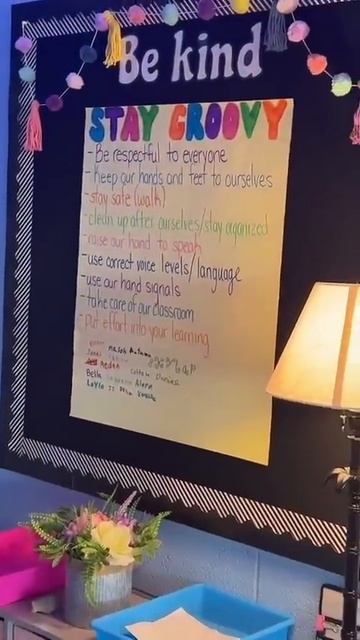 Be kind
STAY GROOVY
- Be respectful to everyone
- keep our hands and feet to ourselves
- stay safe (walk)
- clean up after ourselves/stay organized
- raise our hand to speak
- use correct voice levels/language
- use our hand signals
- take care of our classroom
- put effort into your learning
Autumn
Bella Alana
Layla JJ